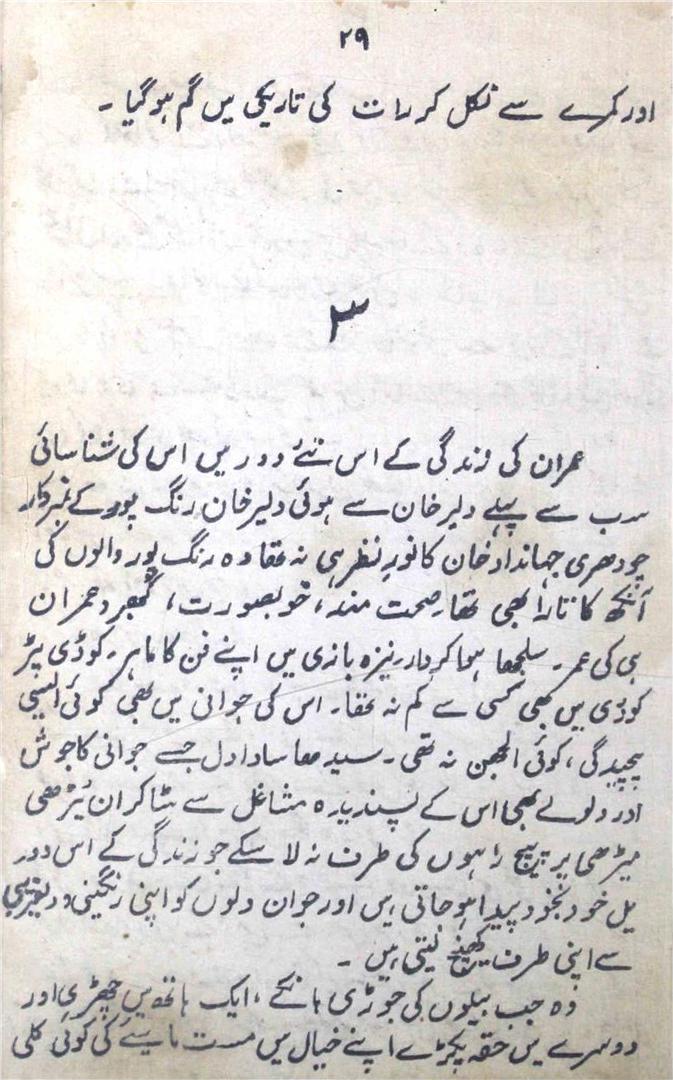 ۲۹
اور کمرے سے نکل کر رات کی تاریکی میں گم ہو گیا ۔
۳
عمران کی زندگی کے اس نئے دور میں اس کی شناسائی
سب سے پہلے دلیر خان سے ہوئی دلیر خان رنگ پور کے نمبردار
چودھری جہانداد خان کا نورِ نظر ہی نہ تھا وہ رنگ پور والوں کی
آنکھ کا تارا بھی تھا۔ صحت مند، خوبصورت، گبھرو عمران
ہی کی عمر۔ سلجھا ہوا کردار۔ نیزہ بازی میں اپنے فن کا ماہر۔ کوڈی پڑ
کوڈی میں بھی کسی سے کم نہ تھا۔ اس کی جوانی میں بھی کوئی ایسی
پیچیدگی، کوئی الجھن نہ تھی۔ سیدھا سادا دل جسے جوانی کا جوش
اور ولولے بھی اس کے پسندیدہ مشاغل سے ہٹا کر ان ٹیڑھی
میڑھی پر پیچ راہوں کی طرف نہ لا سکے جو زندگی کے اس دور
میں خود بخود پیدا ہو جاتی ہیں اور جوان دلوں کو اپنی رنگینی و دلفریبی
سے اپنی طرف کھینچ لیتی ہیں ۔
وہ جب بیلوں کی جوڑی ہانکے، ایک ہاتھ میں چھڑی اور
دوسرے میں حقہ پکڑے اپنے خیال میں مست ماہیے کی کوئی کلی